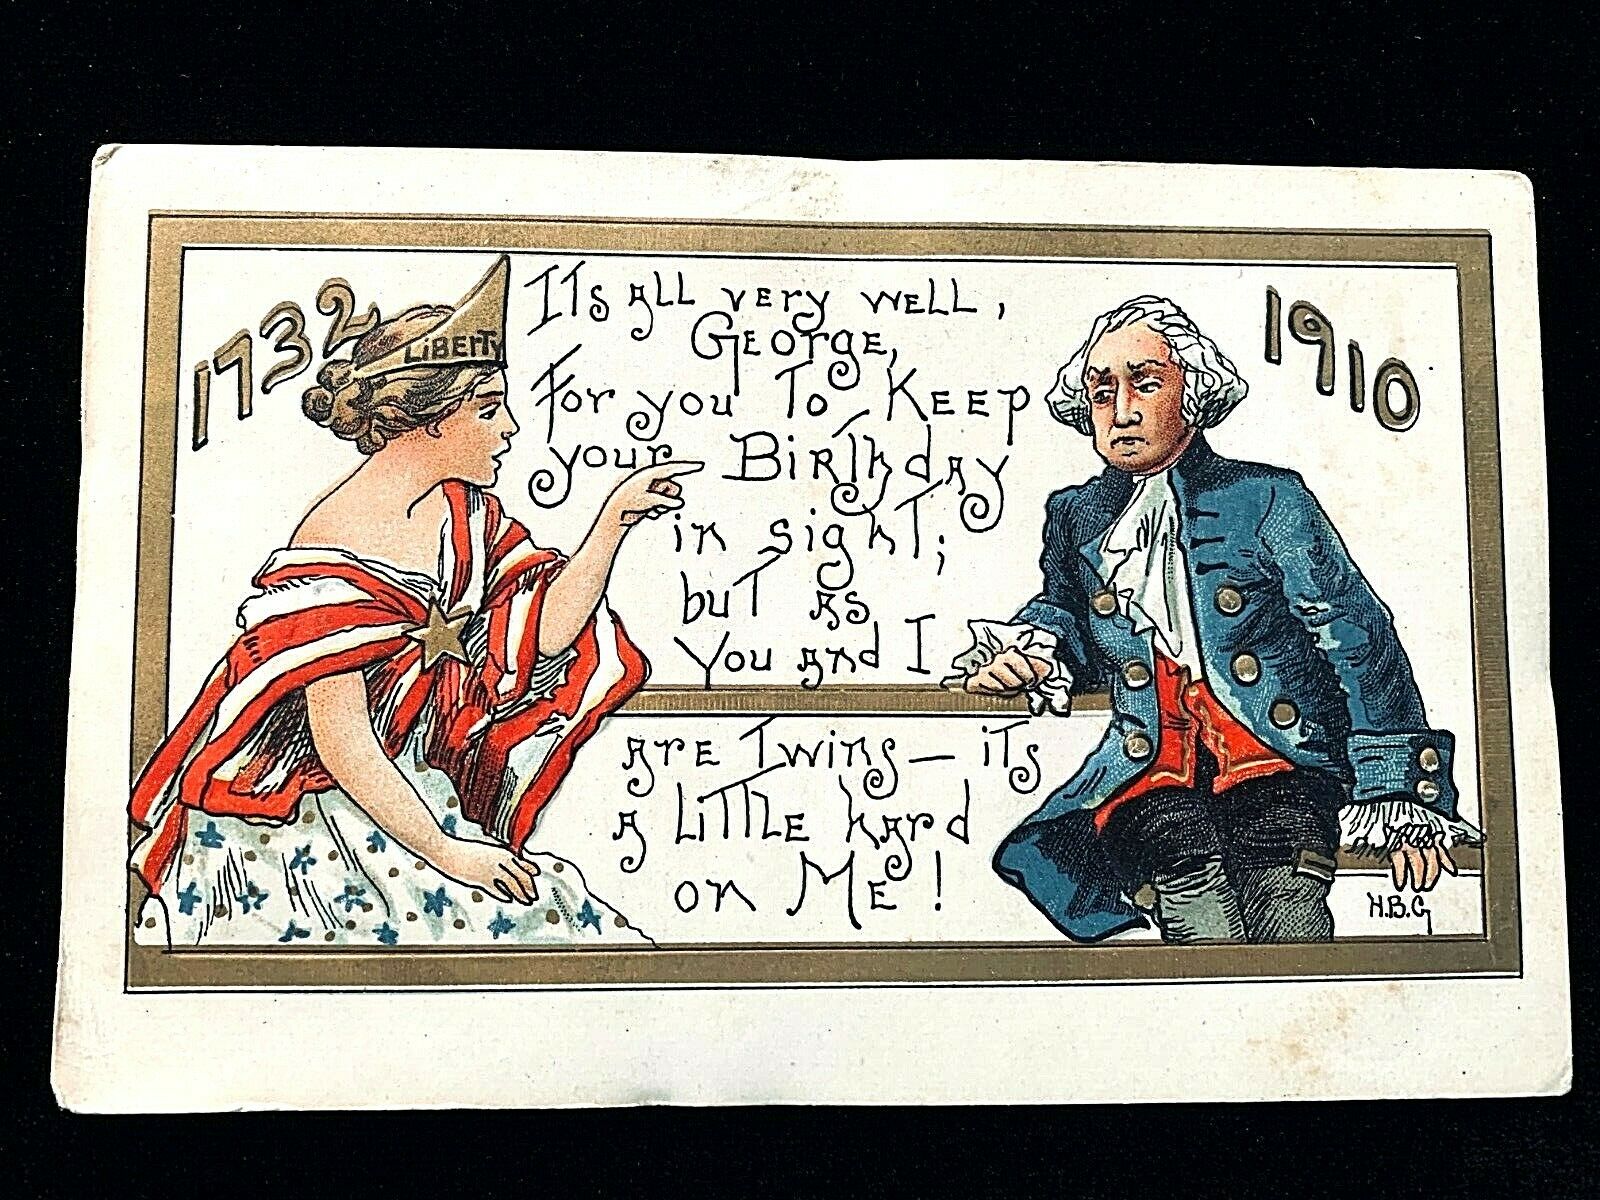 1732
LiBERTY
1910
ITs ALL very wELL,
GEorge,
For you To KEEp
your BirThdAy
in sighT;
buT As
You And I
ArE Twins — iTs
A LiTTLE hArd
on ME!
H.B.G